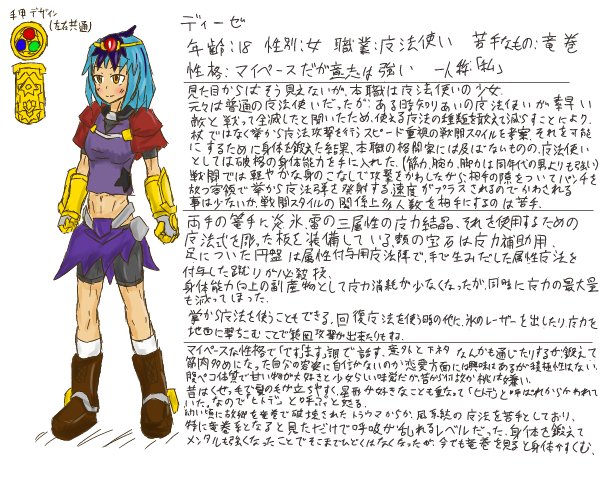 手甲デザイン
(左右共通)
ディーゼ
年齢:18 性別:女 職業:魔法使い 苦手なもの:竜巻
性格:マイペースだが意志は強い 一人称「私」
見た目からはそう見えないが、本職は魔法使いの少女。
元々は普通の魔法使いだったが、ある時知りあいの魔法使いが素早い
敵と戦って全滅したと聞いたため、使える魔法の種類を敢えて減らすことにより、
杖ではなく拳から魔法攻撃を行うスピード重視の戦闘スタイルを考案、それを可能
にするために身体を鍛えた結果、本職の格闘家には及ばないものの、魔法使い
としては破格の身体能力を手に入れた。(筋力、腕力、脚力は同年代の男よりも強い)
戦闘では軽やかな身のこなしで攻撃をかわしたら相手の隙をついてパンチを
放つ容領で拳から魔法弾を発射する。速度がプラスされるのでかわされる
事は少ないが、戦闘スタイルの関係上多人数を相手にするのは苦手。
両手の篭手に炎、氷、雷の三属性の魔力結晶、それを使用するための
魔法式を彫った板を装備している。額の宝石は魔力補助用。
足についた円盤は属性付与用魔法陣で、手で生みだした属性魔法を
付与した蹴りが必殺技。
身体能力向上の副産物として魔力消耗が少なくなったが、同時に魔力の最大量
も減ってしまった。
掌から魔法を使うこともできる。回復魔法を使う時の他に、氷のレーザーを出したり魔力を
地面に撃ちこむことで範囲攻撃が出来たりもする。
マイペースな性格で「です、ます」調で話す。意外と下ネタなんかも通じたりするが鍛えて
筋肉多めになった自分の容姿に自信がないのか恋愛方面には興味はあるが積極性はない。
腹ペコ体質で甘い物が大好きと少女らしい味覚だが、昔から何故か桃は嫌い。
昔はくせっ毛で髪の毛が立ちやすく、星形が好きなことも重なって「ヒトデ」と呼ばれからかわれて
いた。なので「ヒトデ」と呼ぶと怒る。
幼い頃に故郷を竜巻で破壊されたトラウマからか、風系統の魔法を苦手としており、
特に竜巻系となると見ただけで呼吸が乱れるレベルだった。身体を鍛えて
メンタルも強くなったことでそこまでひどくはなくなったが、今でも竜巻を見ると身体がすくむ。